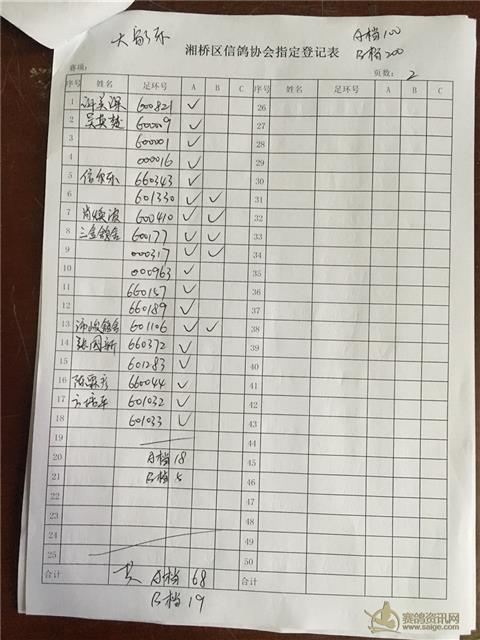 A档100
湘桥区信鸽协会指定登记表
B档200
赛项:
页数: 2
序号 姓名 足环号 A B C 序号 姓名 足环号 A B C
1 600821 ✓ 26
2 600009 ✓ 27
3 600001 ✓ 28
4 000016 ✓ 29
5 660343 ✓ 30
6 601330 ✓ ✓ 31
7 600410 ✓ ✓ 32
8 三金鸽舍 600177 ✓ ✓ 33
9 000317 ✓ ✓ 34
10 000963 ✓ 35
11 660157 ✓ 36
12 660189 ✓
13 601106 ✓ ✓ 38
14 660372 ✓ 39
15 601283 ✓ 40
16 660044 ✓ 41
17 601032 ✓ 42
18 601033 ✓ 43
19 44
20 A档 18 45
21 B档 5 46
22 47
23 48
24 49
25 50
合计 共 A档 68 合计
B档 19
赛鸽资讯网
www.saige.com